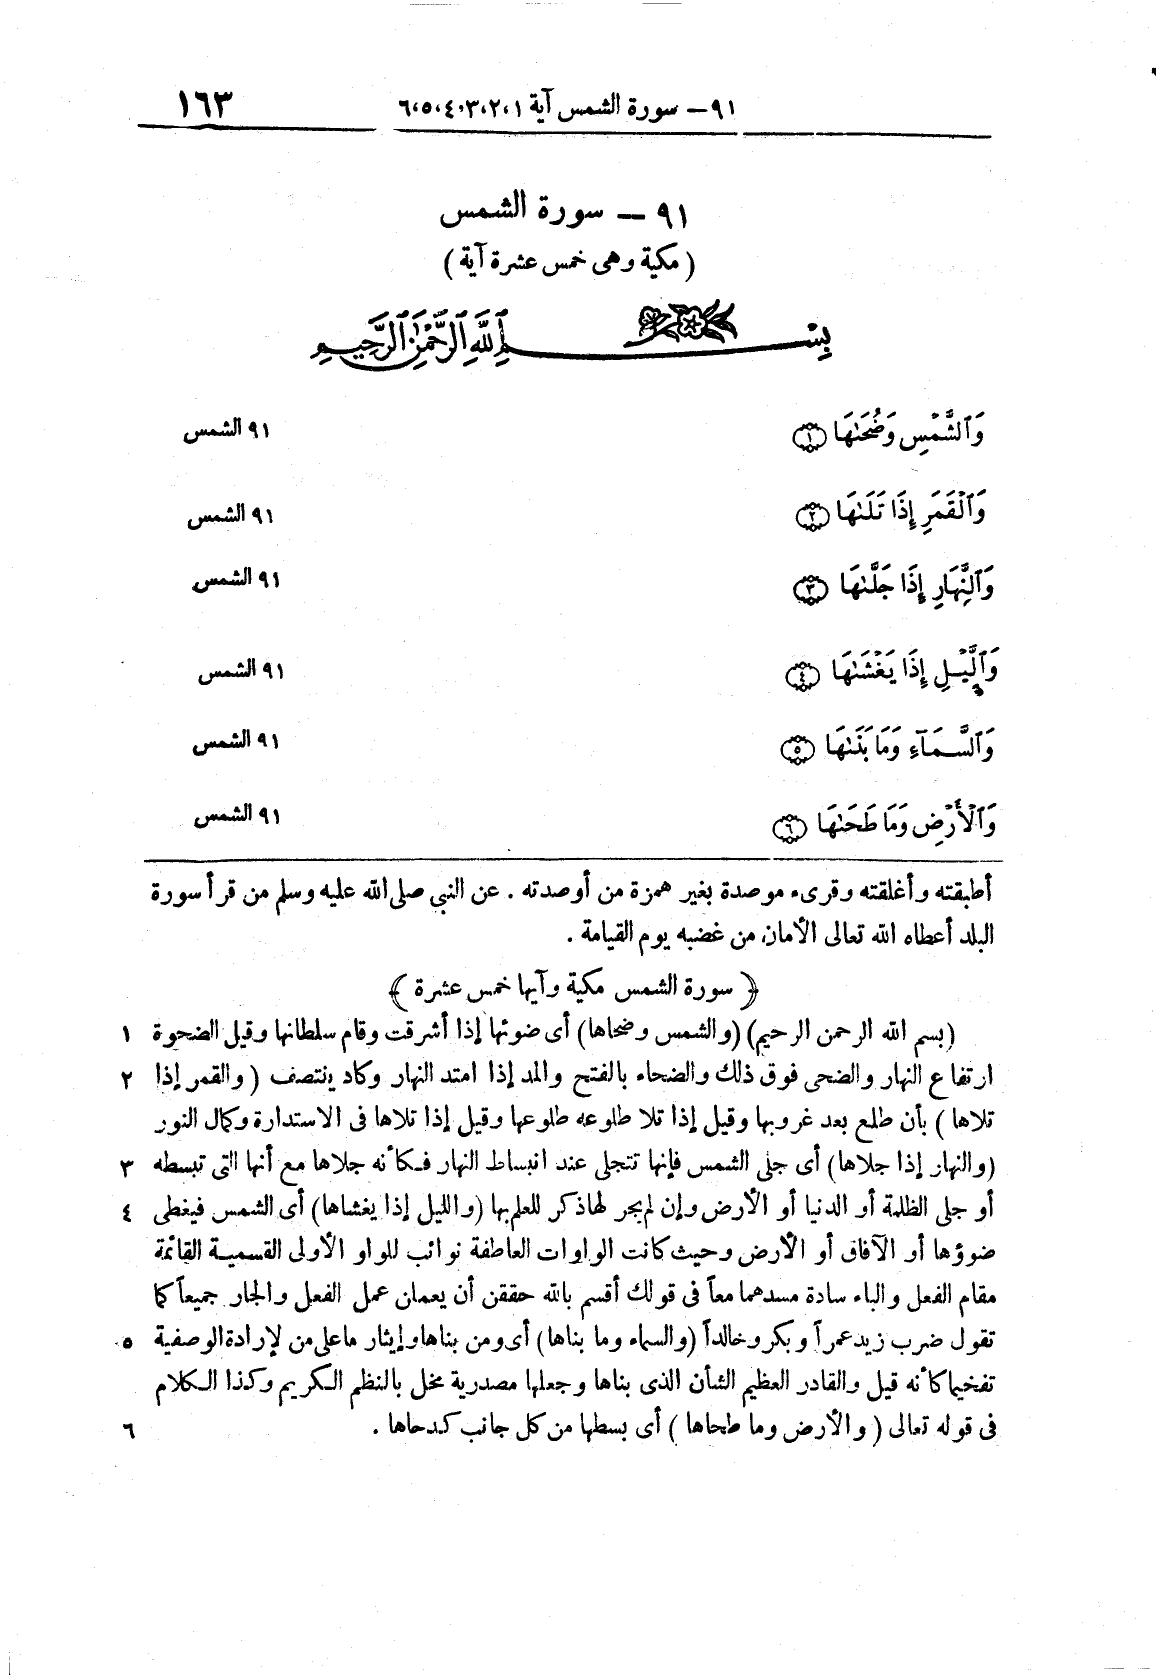 ٩١ – سورة الشمس آية ١،٢،٣،٤،٥،٦ ١٦٣
٩١ – سورة الشمس
( مكية وهى خمس عشرة آية )
بِسْمِ ٱللَّهِ ٱلرَّحْمَٰنِ ٱلرَّحِيمِ
وَٱلشَّمْسِ وَضُحَىٰهَا ١ ٩١ الشمس
وَٱلْقَمَرِ إِذَا تَلَىٰهَا ٢ ٩١ الشمس
وَٱلنَّهَارِ إِذَا جَلَّىٰهَا ٣ ٩١ الشمس
وَٱلَّيْلِ إِذَا يَغْشَىٰهَا ٤ ٩١ الشمس
وَٱلسَّمَآءِ وَمَا بَنَىٰهَا ٥ ٩١ الشمس
وَٱلْأَرْضِ وَمَا طَحَىٰهَا ٦ ٩١ الشمس
أطبقته وأغلقته وقرىء موصدة بغير همزة من أوصدته . عن النبي صلى الله عليه وسلم من قرأ سورة
البلد أعطاه الله تعالى الأمان من غضبه يوم القيامة .
﴿ سورة الشمس مكية وآيها خمس عشرة ﴾
(بسم الله الرحمن الرحيم) (والشمس وضحاها) أى ضوئها إذا أشرقت وقام سلطانها وقيل الضحوة ١
ارتفاع النهار والضحى فوق ذلك والضحاء بالفتح والمد إذا امتد النهار وكاد ينتصف ( والقمر إذا ٢
تلاها ) بأن طلع بعد غروبها وقيل إذا تلا طلوعه طلوعها وقيل إذا تلاها فى الاستدارة وكمال النور
(والنهار إذا جلاها) أى جلى الشمس فإنها تتجلى عند انبساط النهار فكأنه جلاها مع أنها التى تبسطه ٣
أو جلى الظلمة أو الدنيا أو الأرض وإن لم يجر لها ذكر للعلم بها (والليل إذا يغشاها) أى الشمس فيغطى ٤
ضوؤها أو الآفاق أو الأرض وحيث كانت الواوات العاطفة نوائب للواو الأولى القسمية القائمة
مقام الفعل والباء سادة مسدهما معاً فى قولك أقسم بالله حققن أن يعملن عمل الفعل والجار جميعاً كما
تقول ضرب زيد عمراً وبكر وخالداً (والسماء وما بناها) أى ومن بناها وإيثار ما على من لإرادة الوصفية ٥
تفخيما كأنه قيل والقادر العظيم الشأن الذى بناها وجعلها مصدرية مخل بالنظم الكريم وكذا الكلام
فى قوله تعالى ( والأرض وما طحاها ) أى بسطها من كل جانب كدحاها . ٦